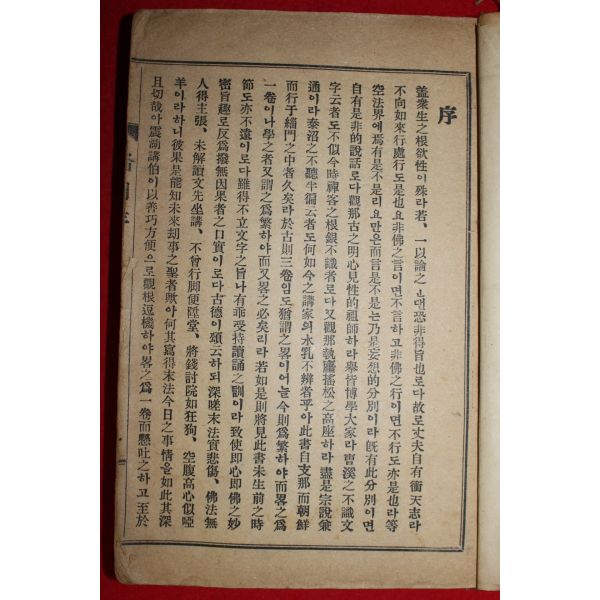 序
盖衆生之根欲性이殊라若、一以論之ㄴ댄恐非得旨也로다故로丈夫自有衝天志라
不向如來行處行도是也요非佛之言이면不言하고非佛之行이면不行도亦是也라等
空法界에焉有是不是리요만은而言是不是는乃是妄想的分別이라旣有此分別이면
自有是非的說話로다觀那古之明心見性的祖師하라擧皆博學大家라曺溪之不識文
字云者도不似今時禪客之根銀不識者로다又觀那執麈搖松之高座하라盡是宗說兼
通이라泰沼之不聽半偏云者도何如今之講家의水乳不辨者乎아此書自支那而朝鮮
而行于緇門之中者久矣라於古則三卷임도猶謂之畧이어늘今則爲繁하야而畧之爲
一卷이나學之者又謂之爲繁하야而又畧之必矣리라若如是則將見此書未生前之時
節도亦不遠이로다雖得不立文字之旨나有乖受持讀誦之訓이라致使即心即佛之妙
密旨趣로反爲撥無因果者之口實이로다古德이頌云하되深嗟末法實悲傷、佛法無
人得主張、未解讀文先坐講、不曾行脚便陞堂、將錢討院如狂狗、空腹高心似啞
羊이라하니彼果是能知未來刼事之聖者歟아何其寫得末法今日之事情을如此其深
且切哉아震湖講伯이以善巧方便으로觀根逗機하야畧之爲一卷而懸吐之하고至於